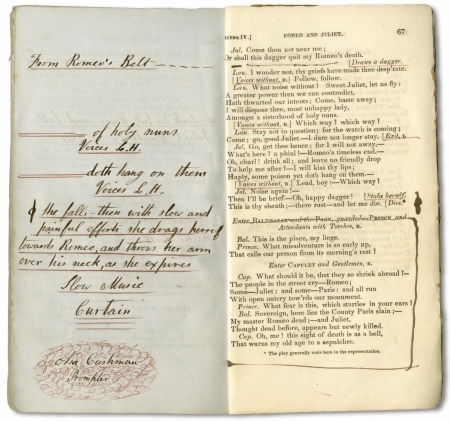 From Romeo's Belt
of holy nuns
Voices L.H.
doth hang on them
Voices L.H.
She falls - then with slow and
painful efforts she drags herself
towards Romeo, and throws her arm
over his neck, as she expires
Slow Music
Curtain
Cha. Cushman
Prompter
SCENE IV.] ROMEO AND JULIET. 67
Jul. Come thou not near me;
Or shall this dagger quit my Romeo's death.
[Draws a dagger.
Lau. I wonder not, thy griefs have made thee desp'rate.
[Voices without, R.] Follow, follow.
Lau. What noise without? Sweet Juliet, let us fly:
A greater power than we can contradict,
Hath thwarted our intents; Come, haste away;
I will dispose thee, most unhappy lady,
Amongst a sisterhood of holy nuns.
[Voices without, R.] Which way? which way?
Lau. Stay not to question; for the watch is coming;
Come; go, good Juliet.—I dare not longer stay. [Exit,
Jul. Go, get thee hence; for I will not away,—
What's here? a phial!—Romeo's timeless end.—
Oh, churl! drink all; and leave no friendly drop
To help me after!—I will kiss thy lips;
Haply, some poison yet doth hang on them.—
[Voices without, R.] Lead, boy:—Which way?
Jul. Noise again!—
Then I'll be brief—Oh, happy dagger! [Stabs herself.
This is thy sheath;—there rust—and let me die. [Dies.*
Enter BALTHASAR and the PAGE, guarded—PRINCE, and
Attendants with Torches, R.
Bal. This is the place, my liege.
Prince. What misadventure is so early up,
That calls our person from its morning's rest?
Enter CAPULET and Gentlemen, R.
Cap. What should it be, that they so shriek abroad?—
The people in the street cry—Romeo;
Some—Juliet: and some—Paris: and all run
With open outcry tow'rds our monument.
Prince. What fear is this, which startles in your ears?
Bal. Sovereign, here lies the County Paris slain;—
My master Romeo dead;—and Juliet,
Thought dead before, appears but newly killed.
Cap. Oh, me! this sight of death is as a bell,
That warns my old age to a sepulchre.
* The play generally ends here in the representation.